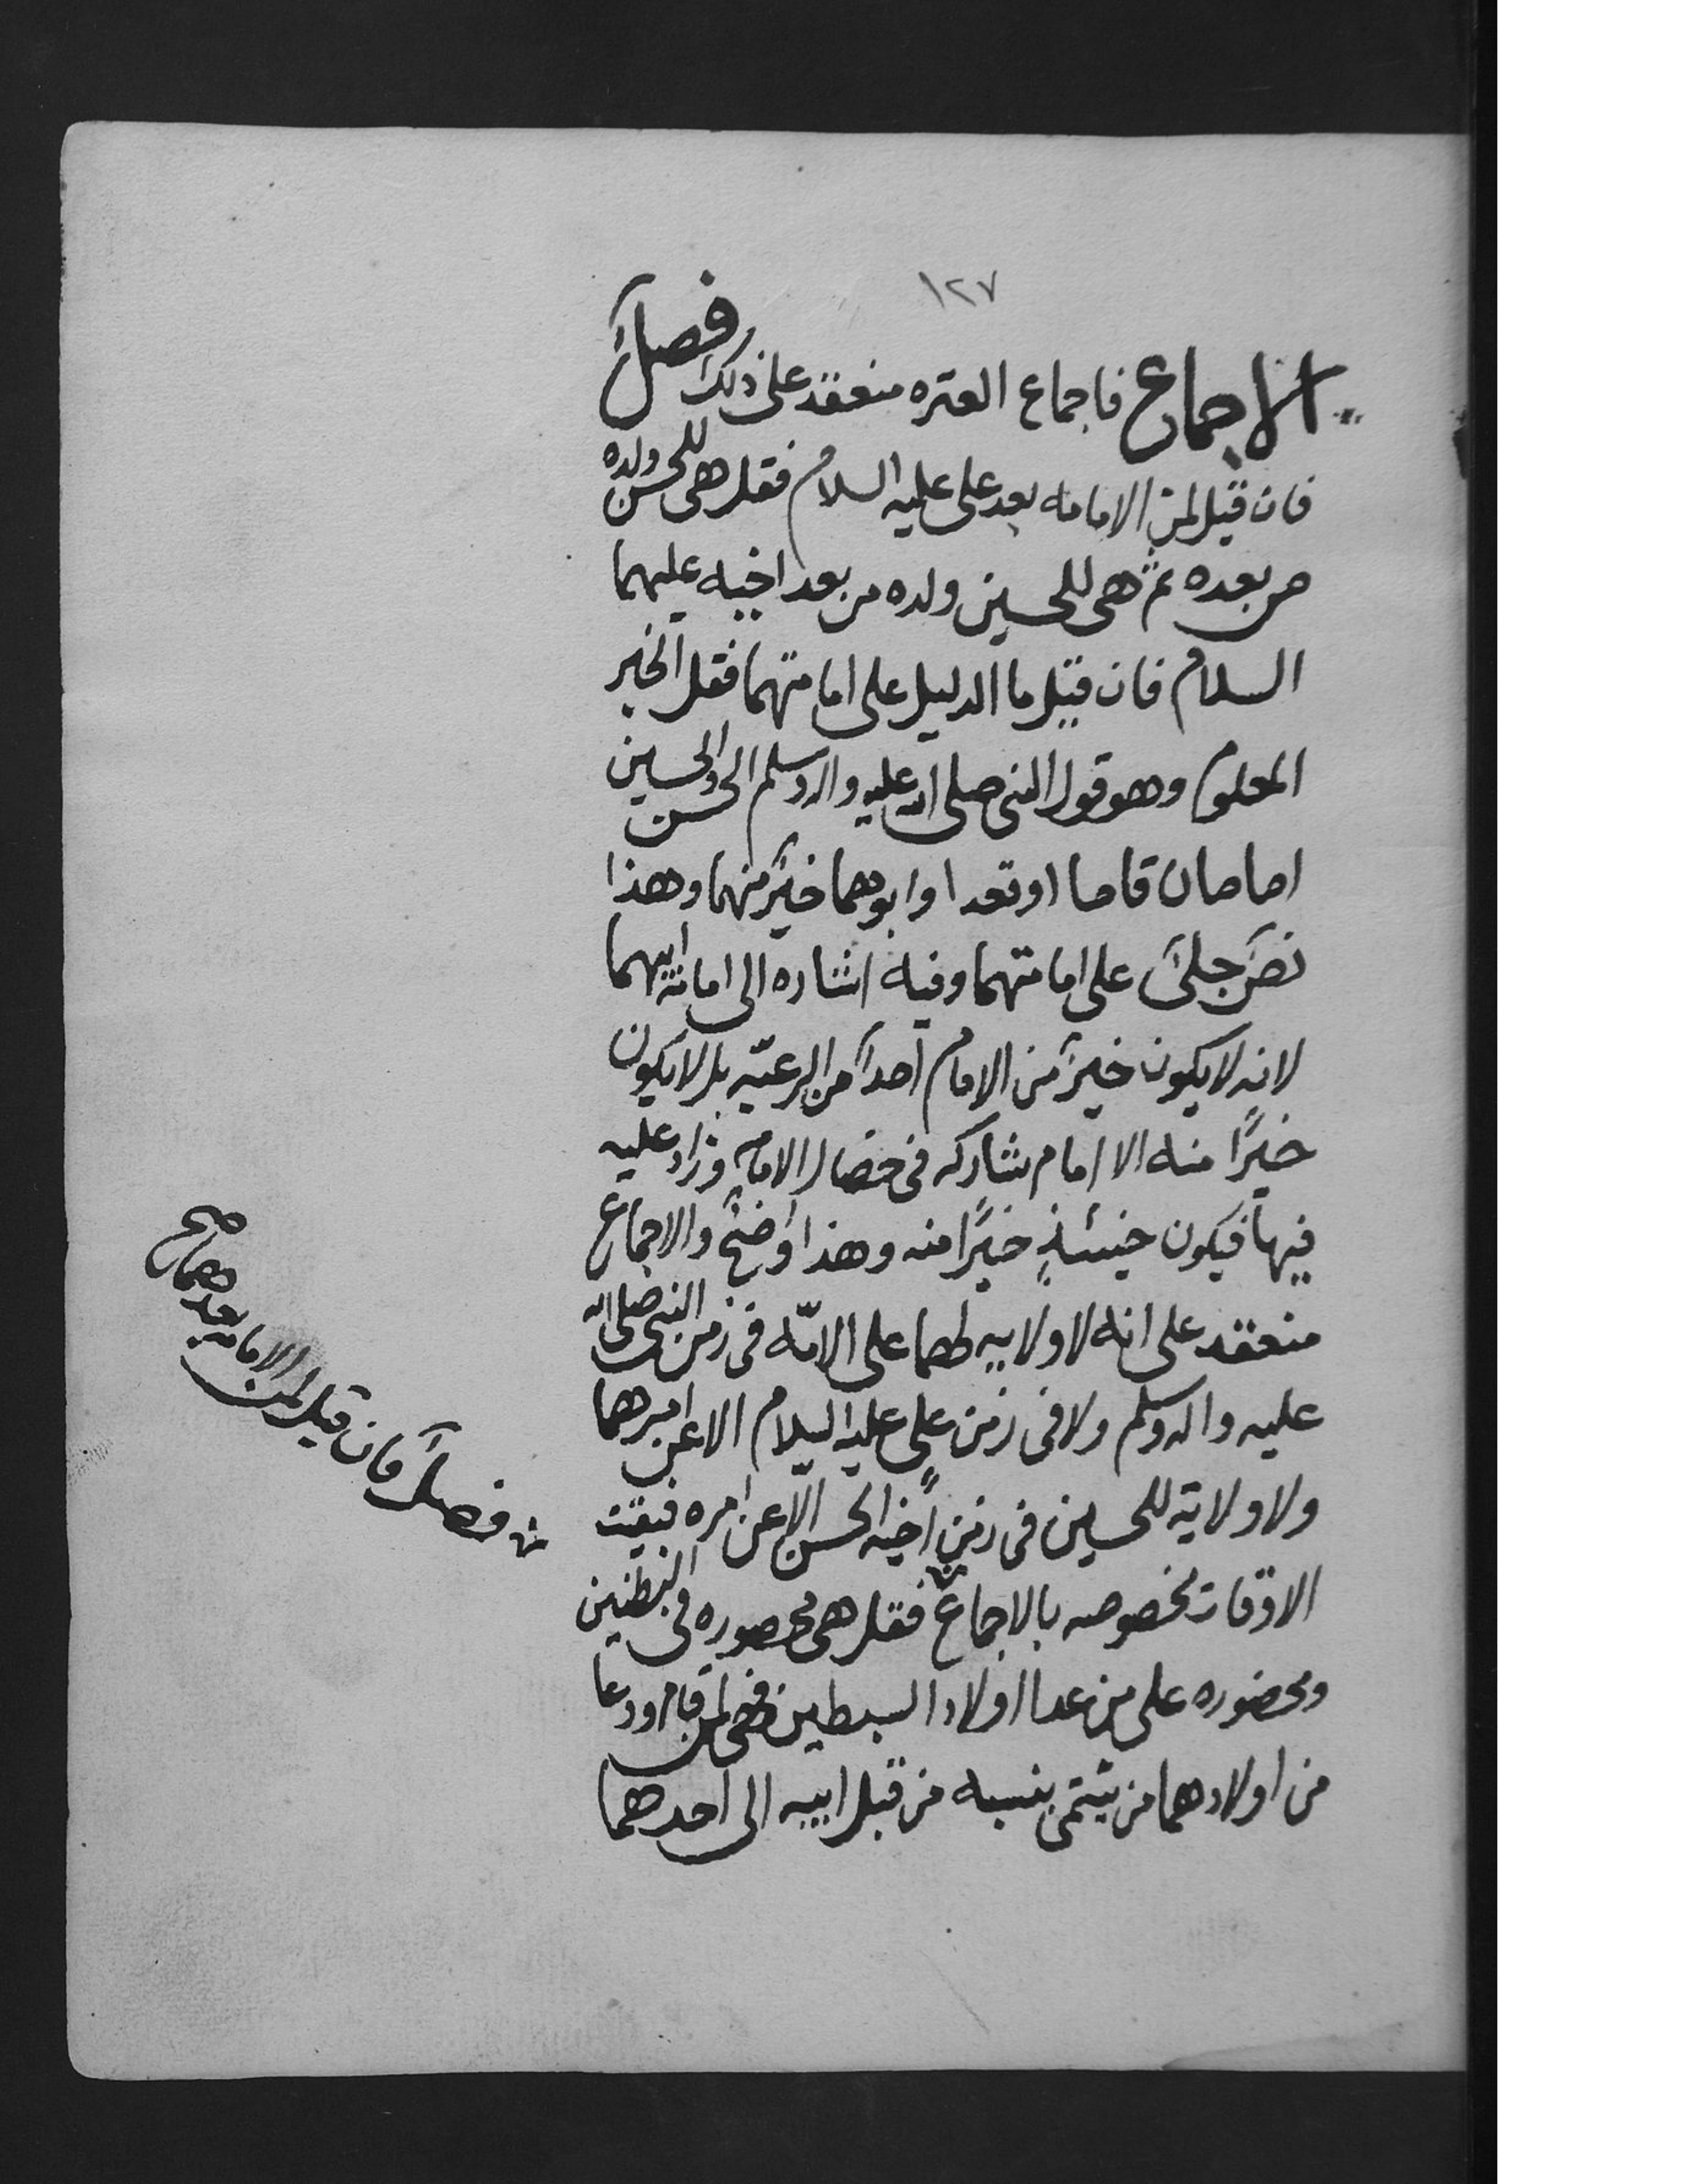 ١٢٧
الاجماع فاجماع العتره منعقد على ذلك فصل
فان قيل لمن الامامه بعد على عليه السلام فقل هى للحسن ولده
من بعده ثم هى للحسين ولده من بعد اخيه عليهما
السلام فان قيل ما الدليل على امامتهما فقل الخبر
المعلوم وهو قول النبى صلى الله عليه واله وسلم الحسن والحسين
امامان قاما او قعدا وابوهما خير منهما وهذا
نص جلى على امامتهما وفيه اشاره الى امامة ابيهما
لانه لا يكون خير من الامام احدا من الرعيّه بل لا يكون
خيرًا منه الا امام يشاركه فى خصال الامامه وزاد عليه
فيها فيكون حينئذٍ خيرًا منه وهذا واضح والاجماع
منعقد على انه لا ولايه لهما على الامّه فى زمن النبى صلى الله
عليه واله وسلم ولا فى زمن على عليه السلام الا عن امرهما
ولا ولاية للحسين فى زمن اخيه الحسن الا عن امره فبقيت
الاوقات مخصوصه بالاجماع فقل هى محصوره فى البطنين
ومحضوره على من عدا اولاد السبطين فهى لمن قام ودعا
من اولادهما من ينتمى بنسبه من قبل ابيه الى احدهما
فصل فان قيل لمن الامامه بعدهما صح